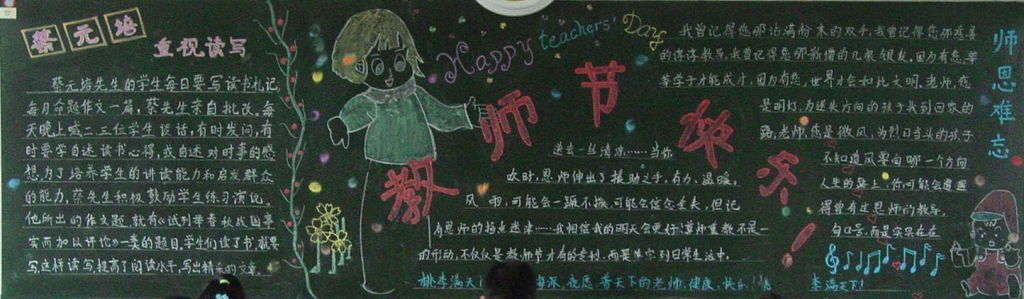 蔡元培
重视读写
蔡元培先生的学生每日要写读书札记,
每月命题作文一篇,蔡先生亲自批改。每
天晚上喊二三位学生谈话,有时发问,有
时要学自述读书心得,或自述对时事的感
想,为了培养学生的讲读能力和启发群众
的能力,蔡先生积极鼓励学生练习演说。
他所出的作文题,就有《试列举春秋战国事
实而加以评论》一类的题目,学生们读了书,就要
写,这样读写,提高了阅读水平,写出精采的文章。
Happy teachers' Day
教师节快乐!
师恩难忘
我曾记得您那沾满粉末的双手,我曾记得您那慈善
的谆谆教导,我曾记得您那新增的几根银发,因为有您,
学子才能成才,因为有您,世界才会如此文明。老师,您
是明灯,为迷失方向的孩子找到回家的
路,老师,您是微风,为烈日当头的孩子
送去一丝清凉……当你
不知道风要向哪一个方向
吹时,恩师伸出了援助之手,有力、温暖。
人生的路上,你可能会遭遇
风雨,可能会一蹶不振,可能会信念丢失,但记
得曾有过恩师的教导,
有恩师的指点迷津……我相信我的明天会更好!
口号,而是实实在在
的行动,不仅仅是教师节才有的专利,而是
桃李满天
祝愿普天下的老师,健康、快乐!
李满天下!